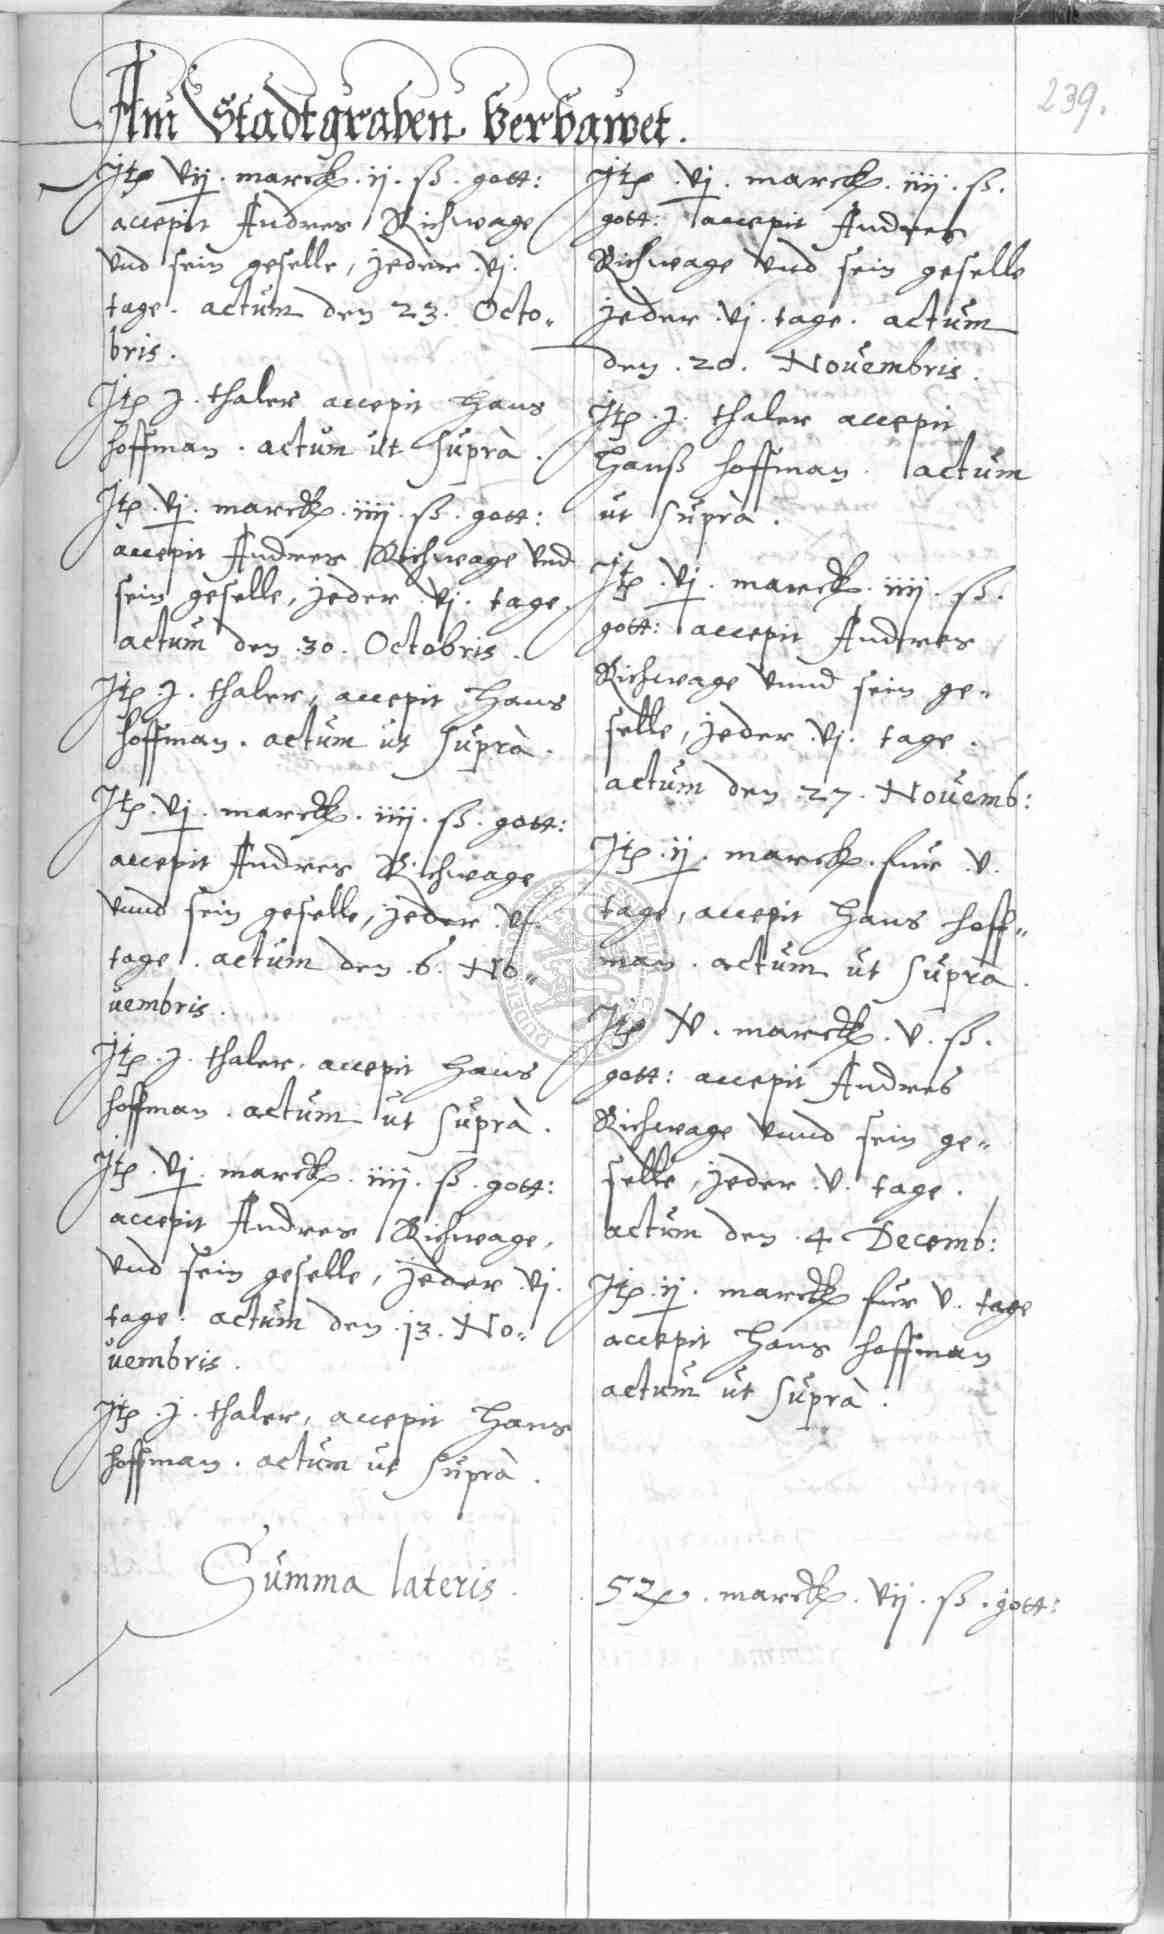 239.
Am Stadtgraben Verbawet.
Itp vij. marck. ij. ß. gott:
accepit Andres Richwage
vnd sein geselle, jeder .vj.
tage. actum den 23. Octo„
bris.
Itp j. thaler accepit Hans
Hoffman. actum ut suprà.
Itp .vj. marck. iiij. ß. gott:
accepit Andres Richwage vnd
sein geselle, jeder .vj. tage.
actum den .30. Octobris.
Itp .j. thaler, accepit Hans
Hoffman. actum ut suprà.
Itp .vj. marck. iiij. ß. gott:
accepit Andres Richwage
vnnd sein geselle, jeder .vj.
tage. actum den .6. No„
uembris.
Itp .j. thaler. accepit Hans
Hoffman. actum ut suprà.
Itp .vj. marck. iiij. ß. gott:
accepit Andres Richwage,
vnd sein geselle, jeder .vj.
tage. actum den .13. No„
uembris.
Itp .j. thaler, accepit Hans
Hoffman. actum ut suprà.
Itp .vj. marck. iiij. ß.
gott: accepit Andres
Richwage vnd sein geselle
jeder .vj. tage. actum
den .20. Nouembris.
Itp .j. thaler accepit
Hanß Hoffman. actum
ut suprà.
Itp .vj. marck. iiij. ß.
gott: accepit Andres
Richwage vnnd sein ge„
selle, jeder .vj. tage.
actum den .27. Nouemb:
Itp .ij. marck. fur .v.
tage, accepit Hans Hoff„
man. actum ut suprà.
Itp v. marck. v. ß.
gott: accepit Andres
Richwage vnnd sein ge„
selle, jeder .v. tage.
actum den .4 Decemb:
Itp .ij. marck fur v. tage
accepit Hans Hoffman
actum ut suprà.
Summa lateris.
marck. vij. ß. gott: